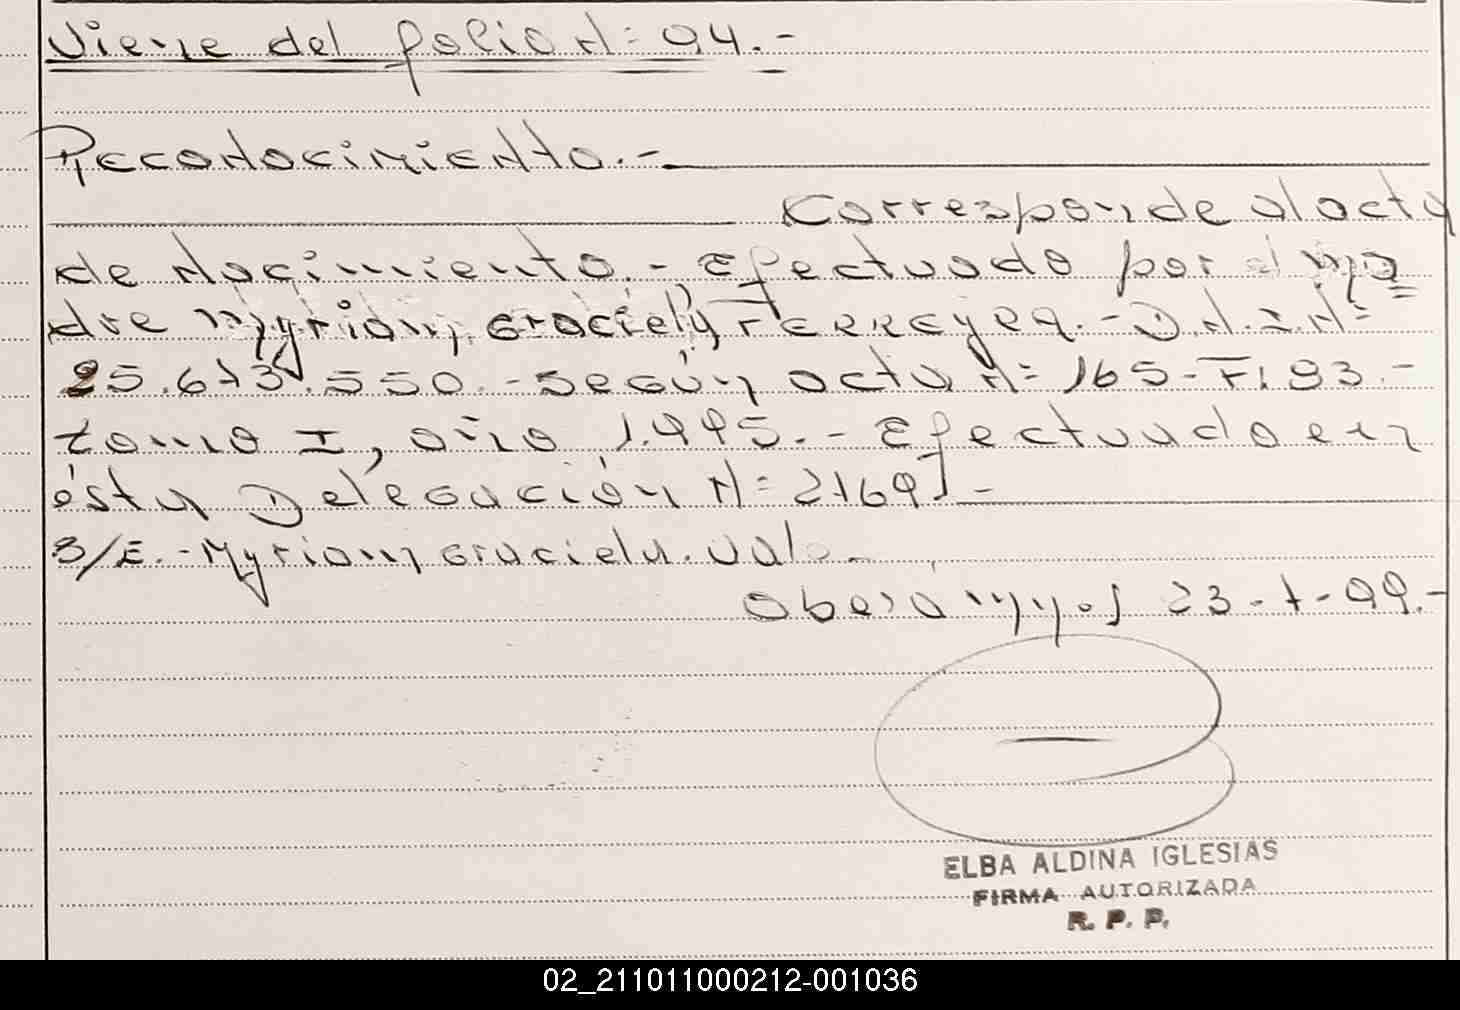 Viene del folio N= 94.-
Reconocimiento.-
Corresponde al acta
de Nacimiento.- Efectuado por la ma
dre Myriam, Graciela Ferreyra.- D.N.I.N=
25.673.550.- según acta N= 165- F. 93.-
tomo I, año 1.995.- Efectuado en
ésta Delegación N= 2169
S/E.- Myriam Graciela. Vale-
Oberá 23-7-99.-
ELBA ALDINA IGLESIAS
FIRMA AUTORIZADA
R. P. P.
02_211011000212-001036